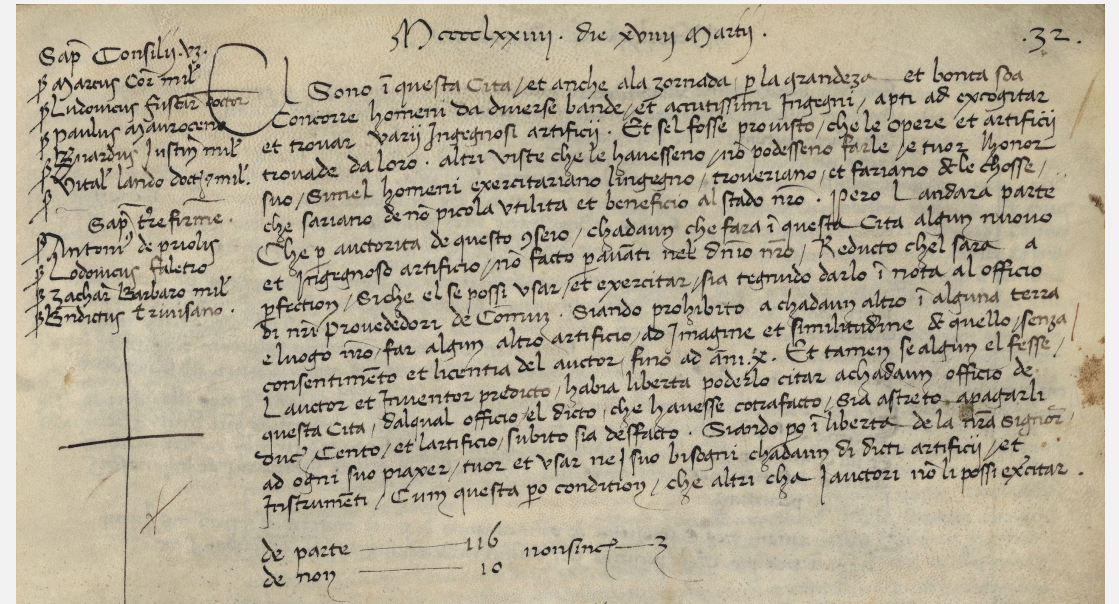 Mcccclxxiiii. die xviiii Martii.
.32.
Sap̄ Consilii. vꝫ.
p̱ Marcus Cor̄ mil̄
p̱ Ludovicus fuscar̄ doctor
p̱ Paulus Mauroceno
p̱ B̄nardus Justin̄ mil̄
p̱ Vital̄ lando doct ⁊ mil̄.
p̱
Sap̄ t̄re firme.
p̱ Antoni' de priolis
p̱ Lodovicus faletro
p̱ Zachar̄ Barbaro mil̄
p̱ B̄ndictus trivisano.
El Sono ī questa Cita, et anche ala zornada p̱ la grandeza et bonta soa
Concorre homeni da diverse bande, et accutissimi Ingegni, apti ad excogitar
et trovar varii Ingegnosi artificii. Et sel fosse provisto, che le opere et artificii
trovade da loro. altri viste che le havesseno, nō podesseno farle, e tuor lhonor
suo, Simel homeni exercitariano lingegno, troveriano, et fariano de le chosse,
che sariano de nō picola utilita et beneficio al stado nr̄o. Pero Landara parte
Che p̱ auctorita de questo ꝯseio, chadaun che fara ī questa Cita algun nuovo
et Ingegnoso artificio, nō facto p̱avāti nel dn̄io nr̄o, Reducto chel sara a
p̱fection, Siche el se possi usar, et exercitar, sia tegnudo darlo ī nota al officio
di nr̄i Provededori de Comun. Siando prohibito a chadaun altro ī alguna terra
e luogo nr̄o, far algun altro artificio, ad Imagine et similitudine de quello, senza
consentimēto et licentia del auctor, fino ad āni .x. Et tamen se algun el fesse,
Lauctor et Inventor predicto, habia liberta poderlo citar a chadaun officio de
questa Cita, dal qual officio, el dicto, che havesse cōtrafacto, sia astreto apagarli
duc̄ Cento, et lartificio, subito sia desfacto. Siando po ī liberta de la nr̄a Signor̄,
ad ogni suo piaxer, tuor et usar ne i suo bisogni chadaun di dicti artificii, et
Instrumēti, Cum questa po condition, che altri cha i auctori nō li possi ex̄citar.
de parte 116 non sinc̄ 3
de non 10